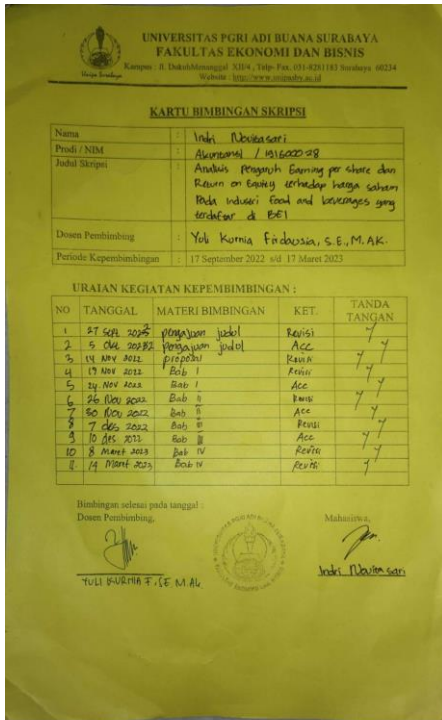 UNIVERSITAS PGRI ADI BUANA SURABAYA
FAKULTAS EKONOMI DAN BISNIS
Kampus : Jl. DukuhMenanggal XII/4 , Telp- Fax. 031-8281182 Surabaya 60234
Website : http://www.unipasby.ac.id
KARTU BIMBINGAN SKRIPSI
Nama : Indri Novitasari
Prodi / NIM : Akuntansi / 191600028
Judul Skripsi : Analisis Pengaruh Earning per share dan
Return on Equity terhadap harga saham
Pada Industri food and beverages yang
terdaftar di BEI
Dosen Pembimbing : Yuli Kurnia Firdausia, S.E., M.AK.
Periode Kepembimbingan : 17 September 2022 s/d 17 Maret 2023
URAIAN KEGIATAN KEPEMBIMBINGAN :
NO TANGGAL MATERI BIMBINGAN KET. TANDA TANGAN
1 27 Sept 2022 pengajuan judul Revisi
2 5 Okt 2022 Pengajuan judul Acc
3 14 Nov 2022 proposal Revisi
4 19 Nov 2022 Bab I Revisi
5 24 Nov 2022 Bab I Acc
6 26 Nov 2022 Bab II Revisi
7 30 Nov 2022 Bab II Acc
8 7 des 2022 Bab III Revisi
9 10 des 2022 Bab III Acc
10 8 Maret 2023 Bab IV Revisi
11 14 Maret 2023 Bab IV Revisi
Bimbingan selesai pada tanggal :
Dosen Pembimbing, Mahasiswa,
YULI KURNIA F, SE, M.AK Indri Novita sari